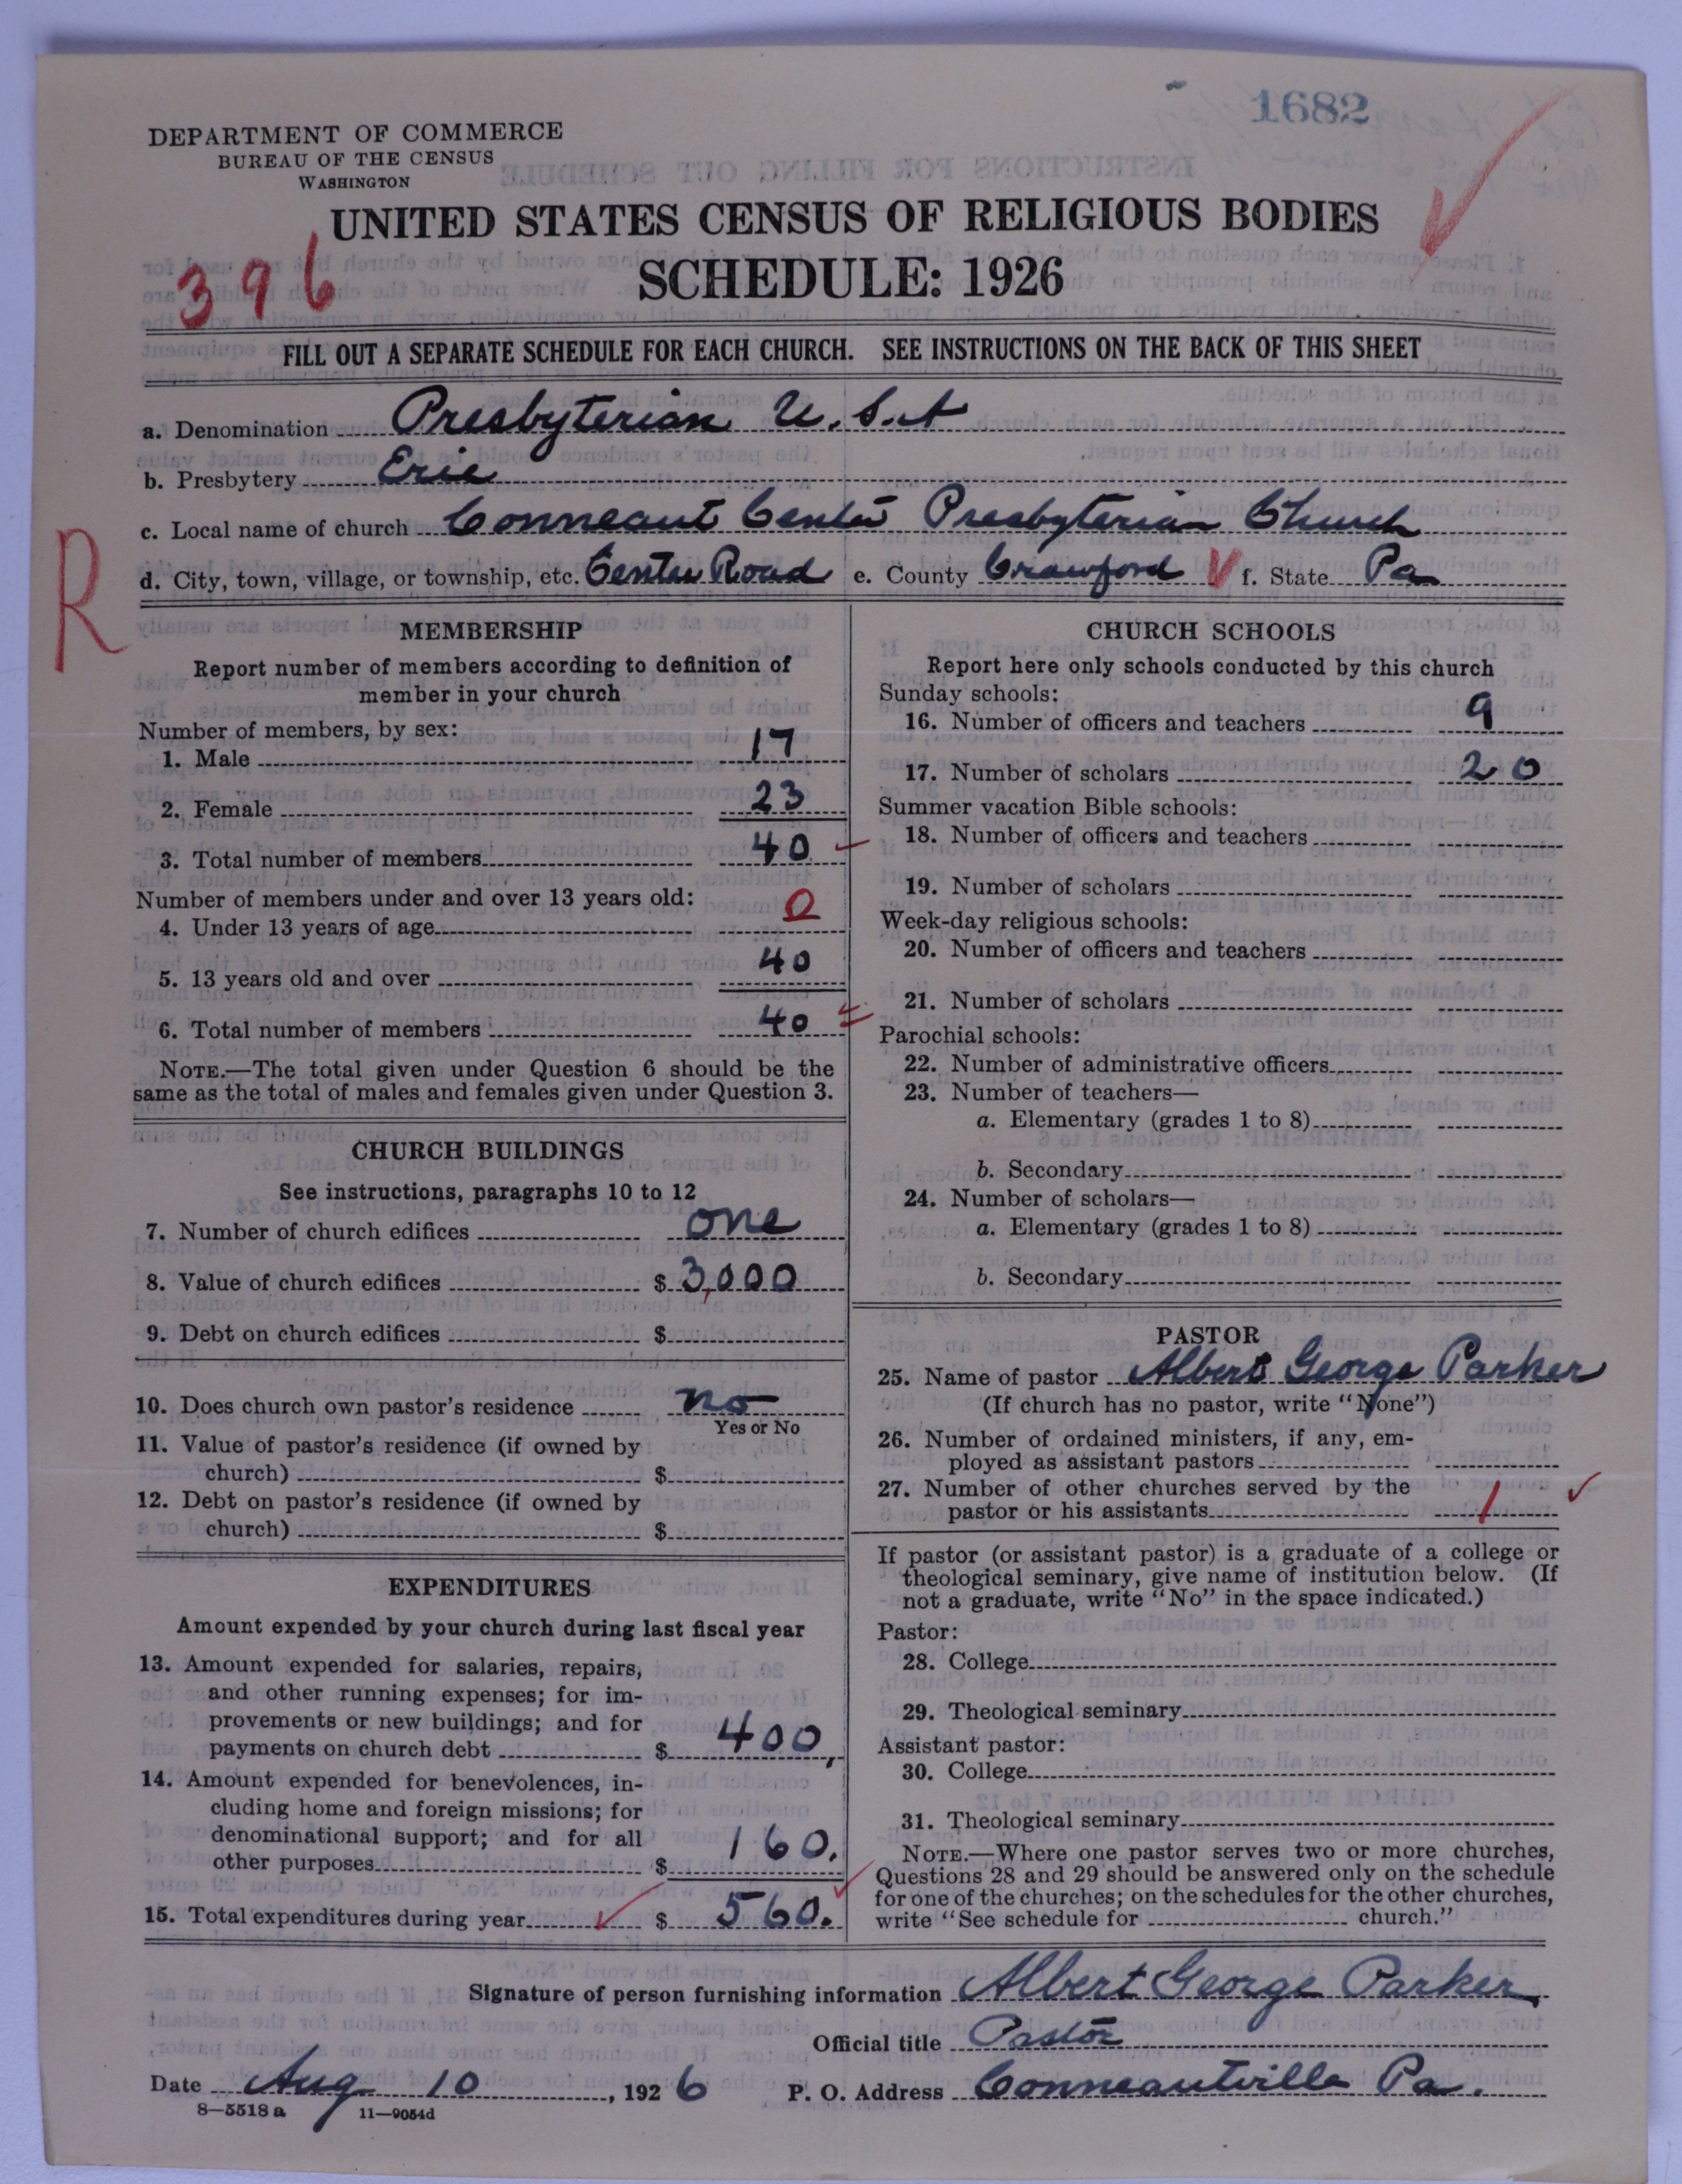 1682
DEPARTMENT OF COMMERCE
BUREAU OF THE CENSUS
WASHINGTON
UNITED STATES CENSUS OF RELIGIOUS BODIES
SCHEDULE: 1926
396
FILL OUT A SEPARATE SCHEDULE FOR EACH CHURCH. SEE INSTRUCTIONS ON THE BACK OF THIS SHEET
a. Denomination Presbyterian U.S.A
b. Presbytery Erie
c. Local name of church Conneaut Center Presbyterian Church
d. City, town, village, or township, etc. Center Road e. County Crawford f. State Pa
R
MEMBERSHIP
Report number of members according to definition of
member in your church
Number of members, by sex:
1. Male 17
2. Female 23
3. Total number of members 40
Number of members under and over 13 years old:
4. Under 13 years of age 0
5. 13 years old and over 40
6. Total number of members 40
NOTE.—The total given under Question 6 should be the
same as the total of males and females given under Question 3.
CHURCH BUILDINGS
See instructions, paragraphs 10 to 12
7. Number of church edifices one
8. Value of church edifices $ 3,000
9. Debt on church edifices $
10. Does church own pastor's residence no
Yes or No
11. Value of pastor's residence (if owned by
church) $
12. Debt on pastor's residence (if owned by
church) $
EXPENDITURES
Amount expended by your church during last fiscal year
13. Amount expended for salaries, repairs,
and other running expenses; for im-
provements or new buildings; and for
payments on church debt $ 400,
14. Amount expended for benevolences, in-
cluding home and foreign missions; for
denominational support; and for all
other purposes $ 160.
15. Total expenditures during year $ 560.
CHURCH SCHOOLS
Report here only schools conducted by this church
Sunday schools:
16. Number of officers and teachers 9
17. Number of scholars 20
Summer vacation Bible schools:
18. Number of officers and teachers
19. Number of scholars
Week-day religious schools:
20. Number of officers and teachers
21. Number of scholars
Parochial schools:
22. Number of administrative officers
23. Number of teachers—
a. Elementary (grades 1 to 8)
b. Secondary
24. Number of scholars—
a. Elementary (grades 1 to 8)
b. Secondary
PASTOR
25. Name of pastor Albert George Parker
(If church has no pastor, write "None")
26. Number of ordained ministers, if any, em-
ployed as assistant pastors
27. Number of other churches served by the
pastor or his assistants 1
If pastor (or assistant pastor) is a graduate of a college or
theological seminary, give name of institution below. (If
not a graduate, write "No" in the space indicated.)
Pastor:
28. College
29. Theological seminary
Assistant pastor:
30. College
31. Theological seminary
NOTE.—Where one pastor serves two or more churches,
Questions 28 and 29 should be answered only on the schedule
for one of the churches; on the schedules for the other churches,
write "See schedule for church."
Signature of person furnishing information Albert George Parker
Official title Pastor
Date Aug 10, 1926 P. O. Address Conneautville Pa.
8—5518a 11—9054d